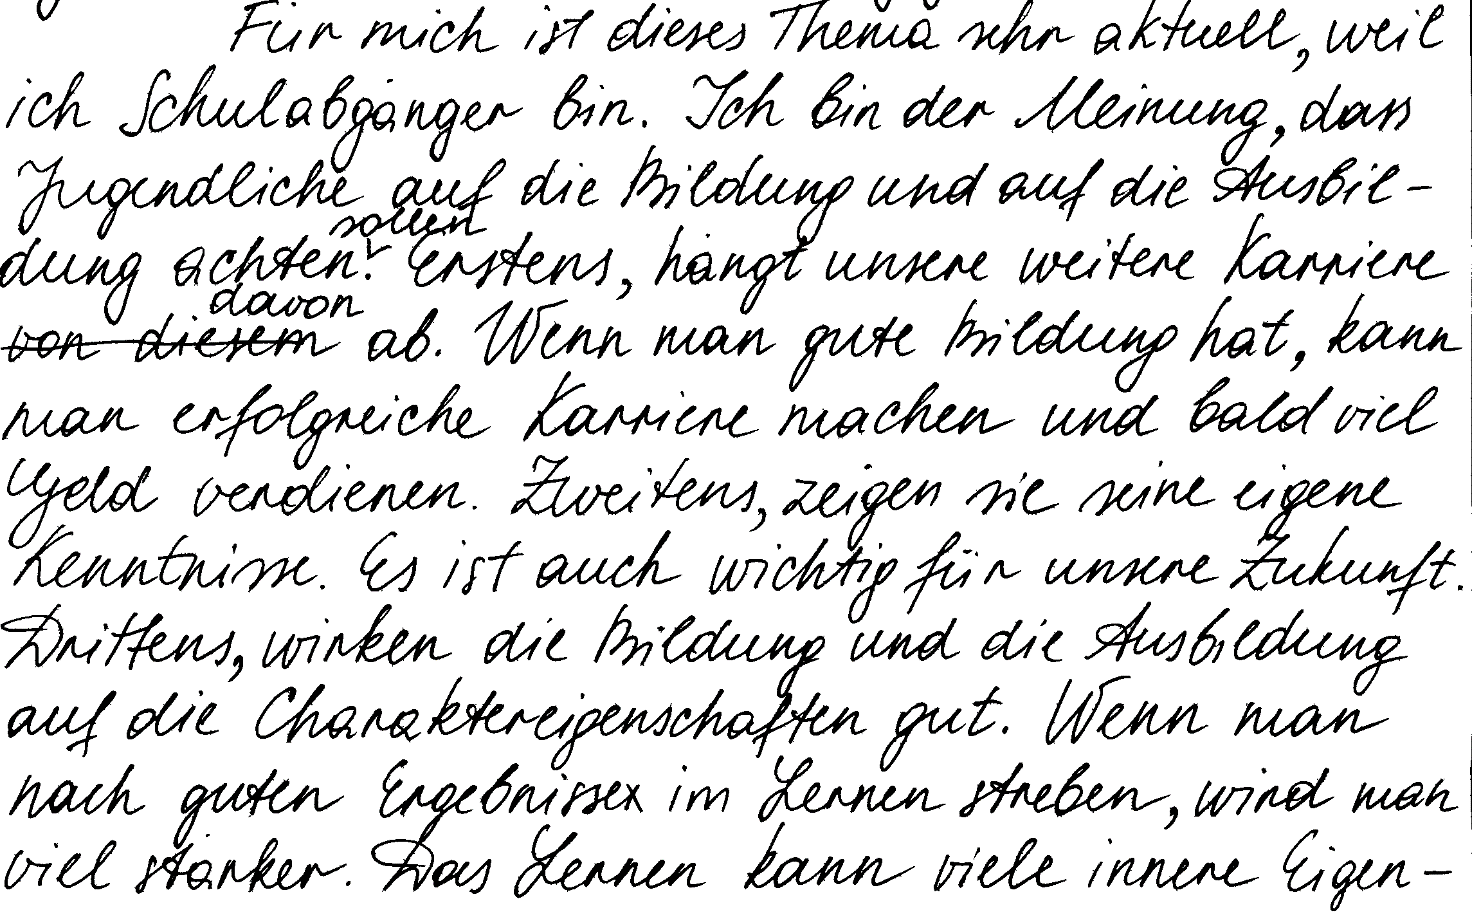 Für mich ist dieses Thema sehr aktuell, weil
ich Schulabgänger bin. Ich bin der Meinung, dass
Jugendliche auf die Bildung und auf die Ausbil-
dung achten sollen. Erstens, hängt unsere weitere Karriere
von diesem davon ab. Wenn man gute Bildung hat, kann
man erfolgreiche Karriere machen und bald viel
Geld verdienen. Zweitens, zeigen sie seine eigene
Kenntnisse. Es ist auch wichtig für unsere Zukunft.
Drittens, wirken die Bildung und die Ausbildung
auf die Charaktereigenschaften gut. Wenn man
nach guten Ergebnissen im Lernen streben, wird man
viel stärker. Das Lernen kann viele innere Eigen-